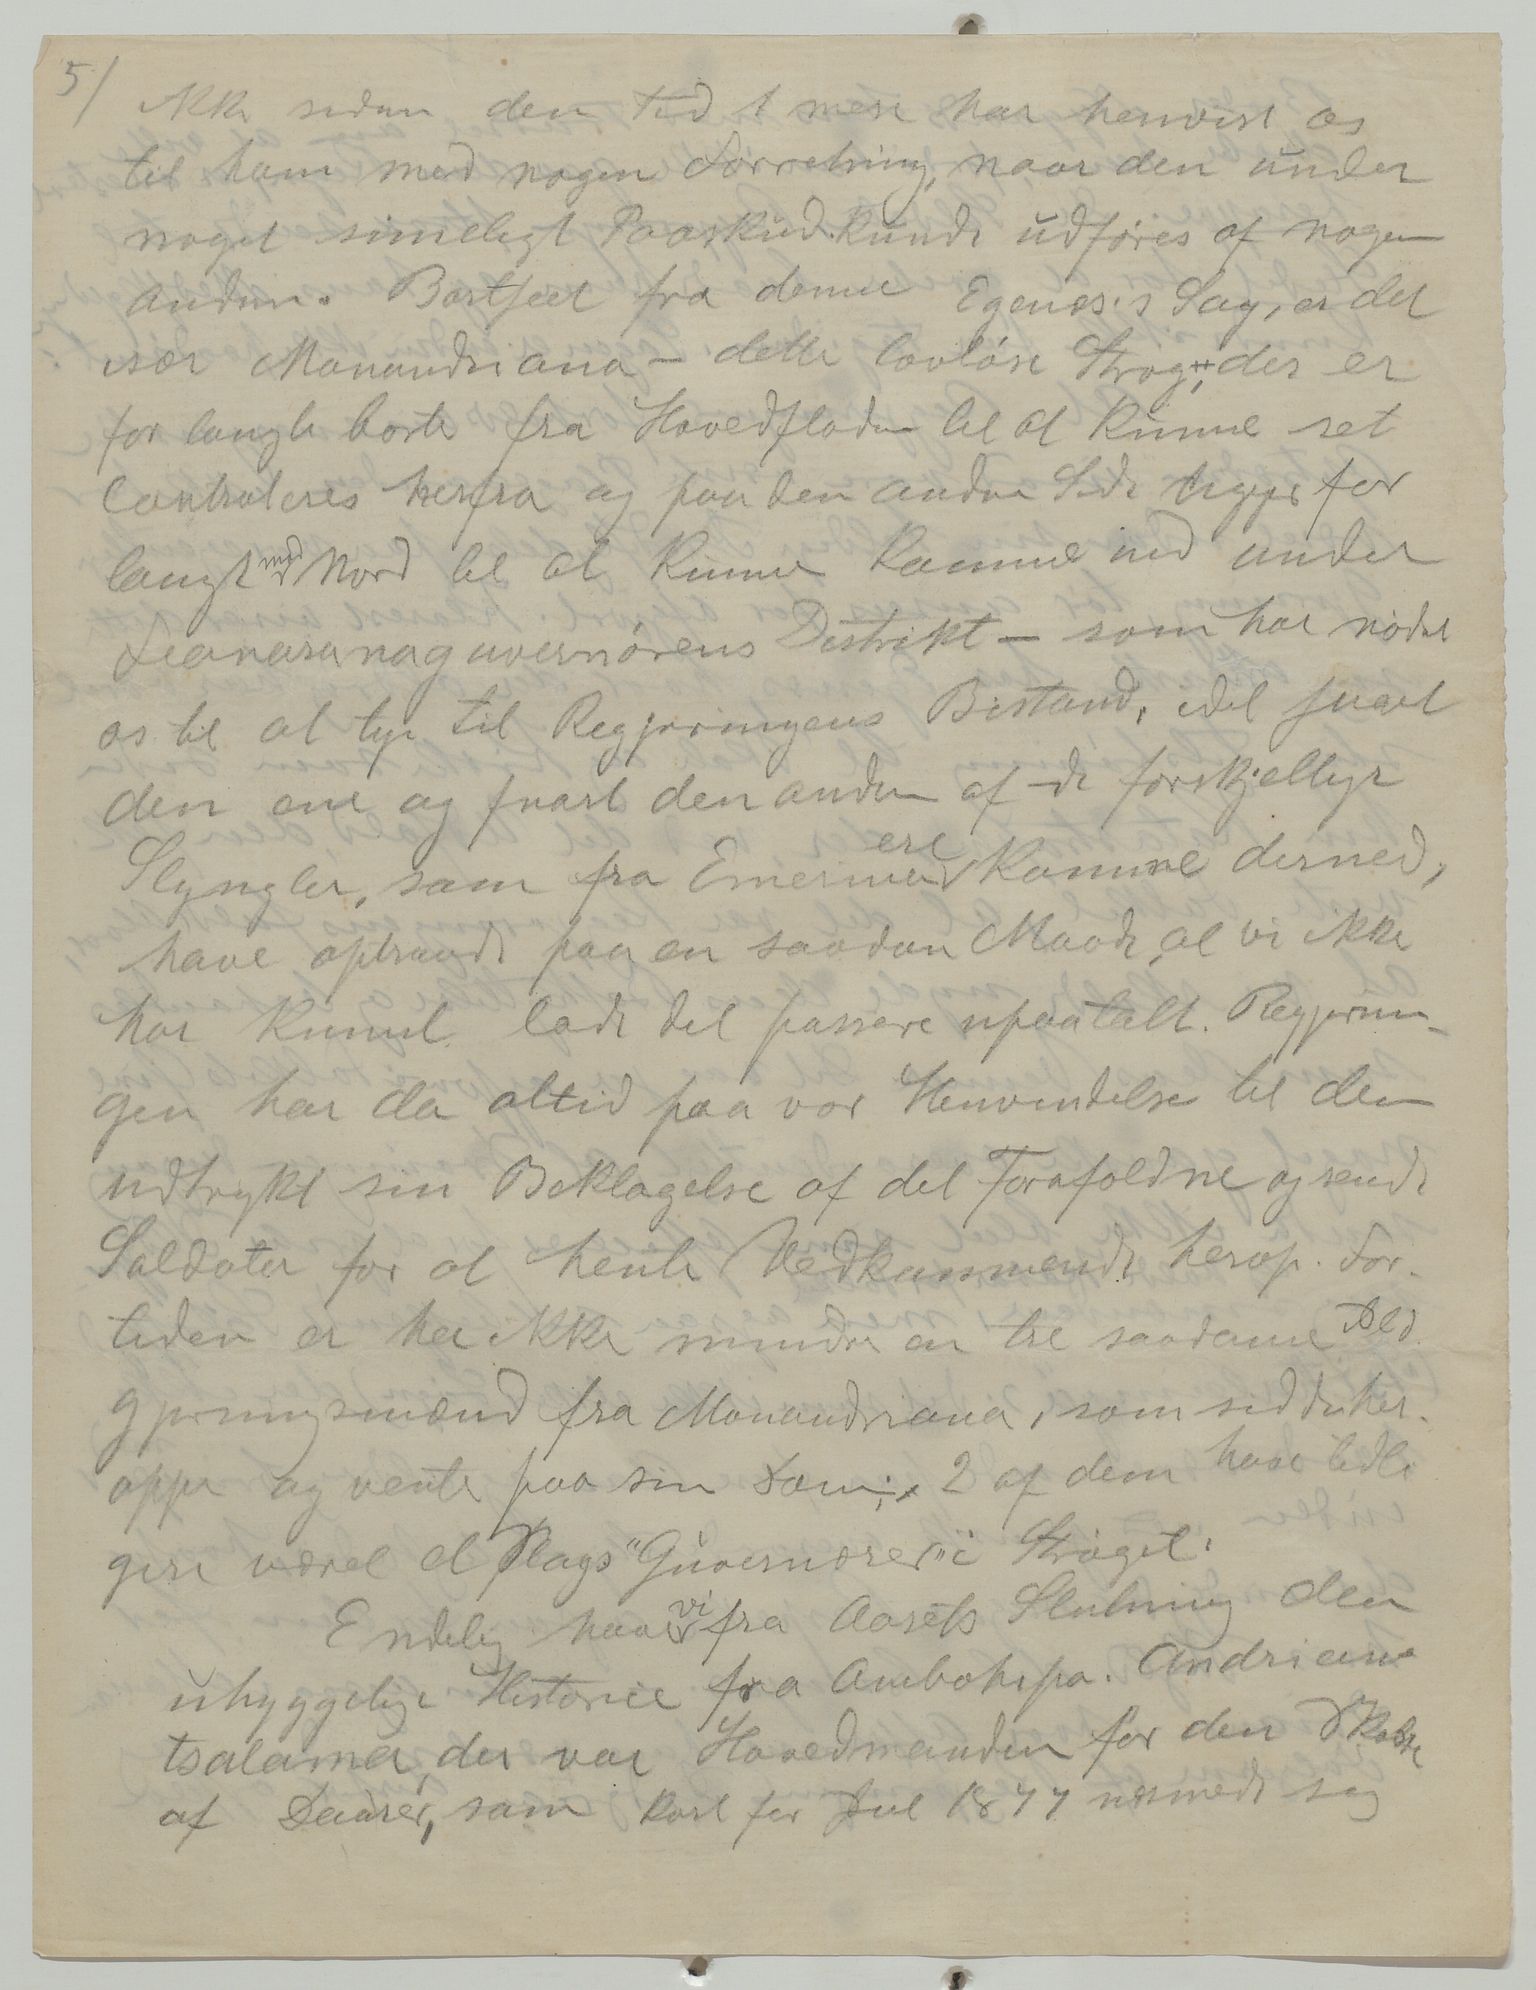 5/
ikke siden den Tid t mere har henvist os
til ham med nogen Forretning, naar den under
noget rimeligt Paaskud kunde udføres af nogen
anden. Bortseet fra denne Egenæs's Sag, er det
især Manandriana – dette lovløse Strøg, der er
for langt borte fra Hovedstaden til at kunne ret
controleres herfra og paa den anden Side ligger for
langt mod Nord til at kunne komme ind under
Fianarana guvernørens Distrikt – som har nødet
os til at tye til Regjeringens Bistand, idet snart
den ene og snart den anden af de forskjellige
Slyngler, som fra Emerina ere komne derned,
have optraadt paa en saadan Maade, at vi ikke
har kunnet lade det passere upaatalt. Regjerin-
gen har da altid paa vor Henvendelse til den
udtrykt sin Beklagelse af det Forefaldne og sendt
Soldater for at hente Vedkommende herop. For-
tiden er her ikke mindre en tre saadanne
gjerningsmænd fra Manandriana, som sidde her-
oppe og vente paa sin Dom; 2 af dem have tidli
gere været et Slags "Guvernører" i Strøget.
Endelig have vi fra Aarets Slutning den
uhyggelige Historie fra Ambohipo. Andriam
tsalama, der var Hovedmanden for den Skobbe
af Daarer, som kort før Jul 1877 nærmede sig